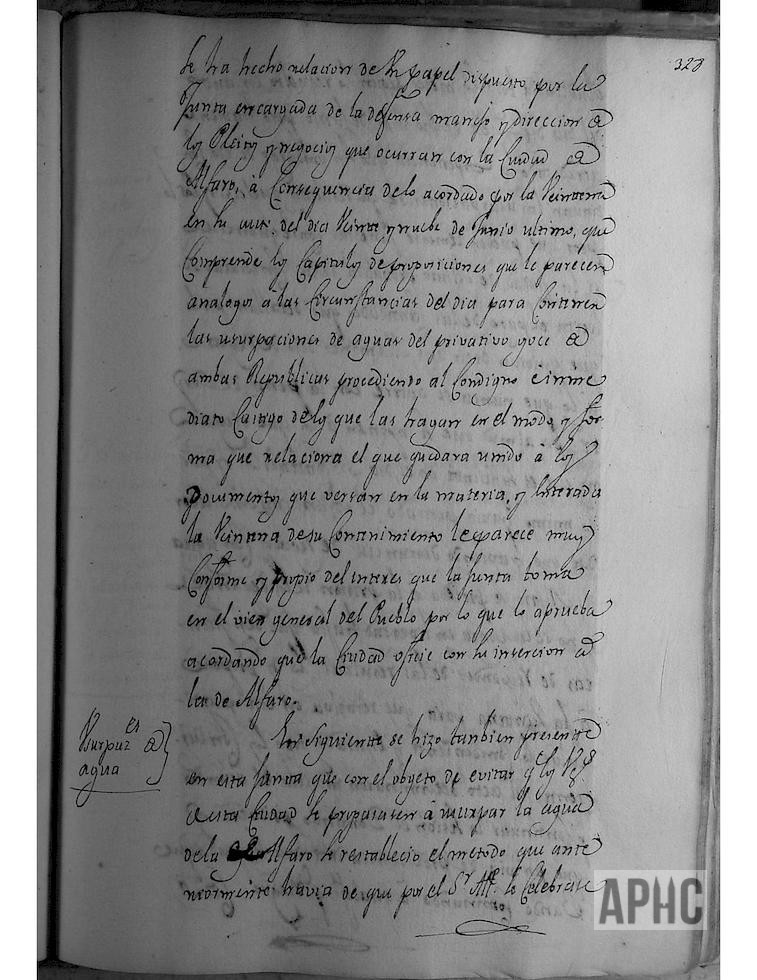 328
Se ha hecho relacion de Un papel dispuesto por la
Junta encargada de la defensa manejo y direccion de
los Pleitos y negocios que ocurran con la Ciudad de
Alfaro, à Consequencia delo acordado por la Veintena
en su del dia Veinte y nuebe de Junio ultimo, que
Comprende los Capitulos de proposiciones que le parecen
analogos a las Circunstancias del dia para Contener
las usurpaciones de aguas del privativo goce de
ambas Republicas procediendo al Condigno è inme
diato Castigo delos que las hagan en el modo, y for
ma que relaciona el que quedara unido à los
Documentos que versan en la materia, y Enterada
la Veintena desu Contenimiento leparece muy
Conforme y propio del interes que la Junta toma
en el vien general del Pueblo por lo que lo aprueba
acordando que la Ciudad oficie con su insercion à
la de Alfaro.
Usurpaz.es de
agua
siguiente se hizo tanbien presente
en esta Junta que con el objeto de evitar q.e los V.s
de esta Ciudad se propasasen à usurpar la agua
dela Alfaro se restablecio el metodo que ante
riormente havia de que por el S.r Alc.e se Celebrase
APHC